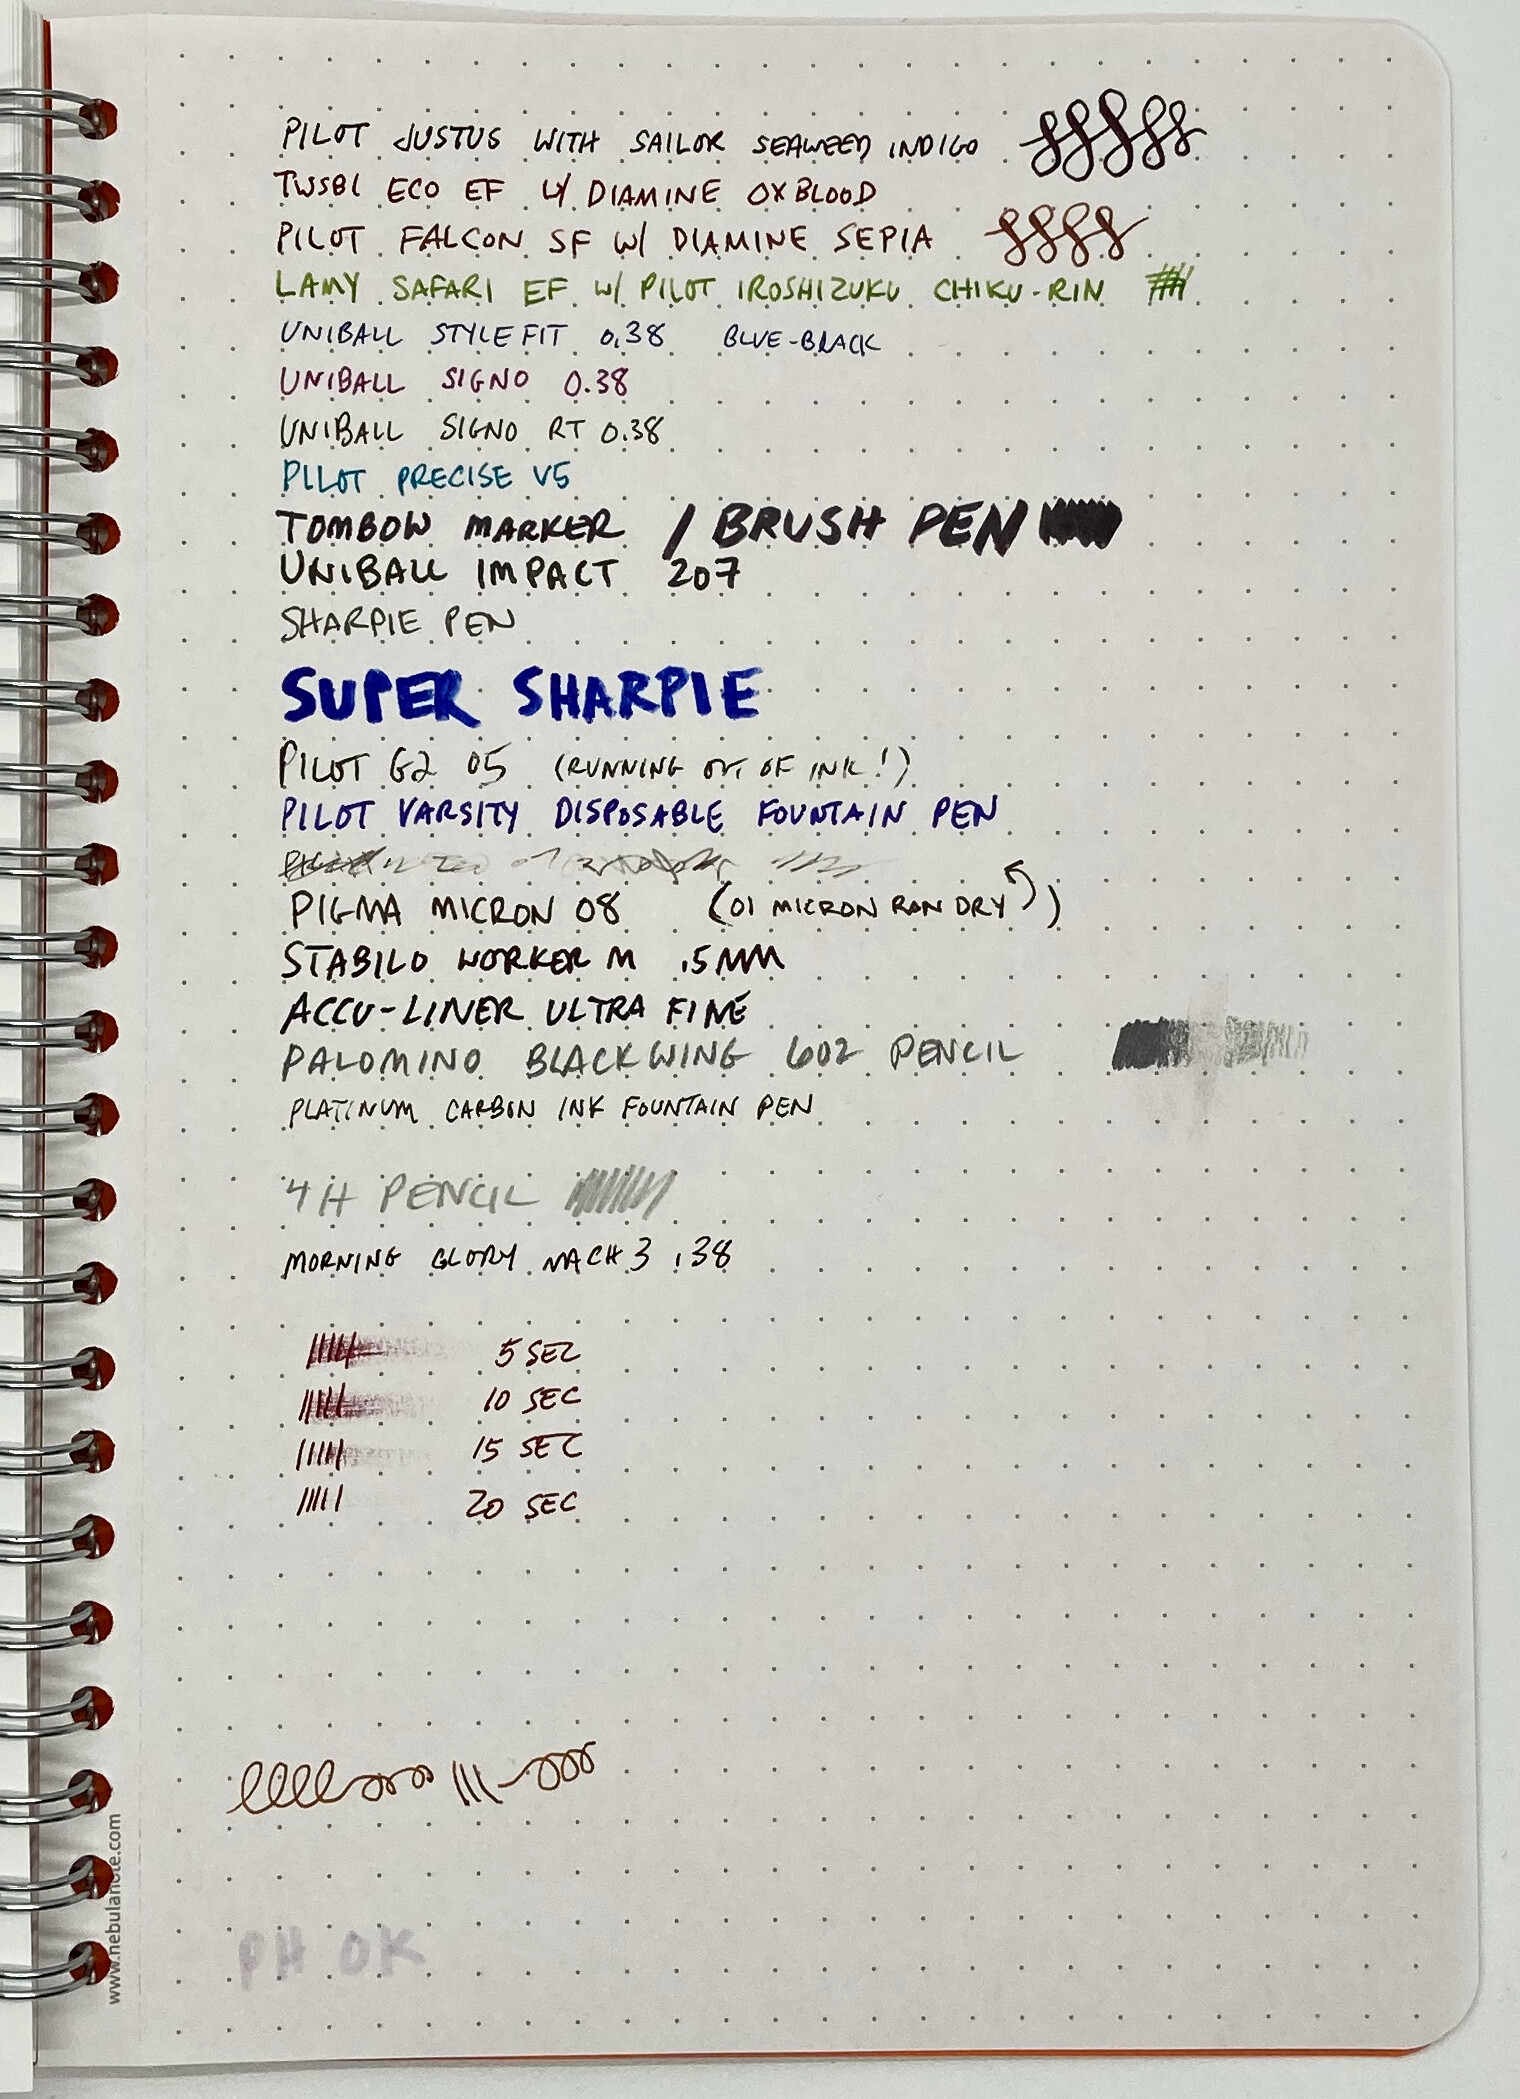 PILOT JUSTUS WITH SAILOR SEAWEED INDIGO
TWSBI ECO EF W/ DIAMINE OXBLOOD
PILOT FALCON SF W/ DIAMINE SEPIA
LAMY SAFARI EF W/ PILOT IROSHIZUKU CHIKU-RIN
UNIBALL STYLEFIT 0.38 BLUE-BLACK
UNIBALL SIGNO 0.38
UNIBALL SIGNO RT 0.38
PILOT PRECISE V5
TOMBOW MARKER / BRUSH PEN
UNIBALL IMPACT 207
SHARPIE PEN
SUPER SHARPIE
PILOT G2 05 (RUNNING OUT OF INK!)
PILOT VARSITY DISPOSABLE FOUNTAIN PEN
PIGMA MICRON 08 (01 MICRON RAN DRY)
STABILO WORKER M .5MM
ACCU-LINER ULTRA FINE
PALOMINO BLACKWING 602 PENCIL
PLATINUM CARBON INK FOUNTAIN PEN
4H PENCIL
MORNING GLORY MACH 3 .38
5 SEC
10 SEC
15 SEC
20 SEC
PH OK
www.nebulanote.com